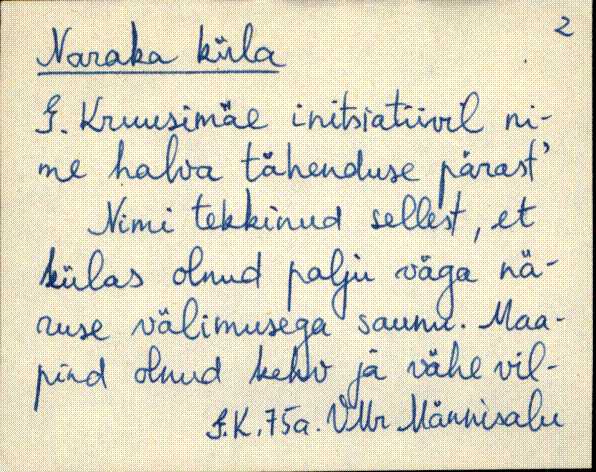 2
Naraka küla
J. Kruusimäe initsiatiivil ni-
me halva tähenduse pärast’
Nimi tekkinud sellest, et
külas olnud palju väga nä-
ruse välimusega saunu. Maa-
pind olnud kehv ja vähe vil-
J.K., 75a. VMr Männisalu